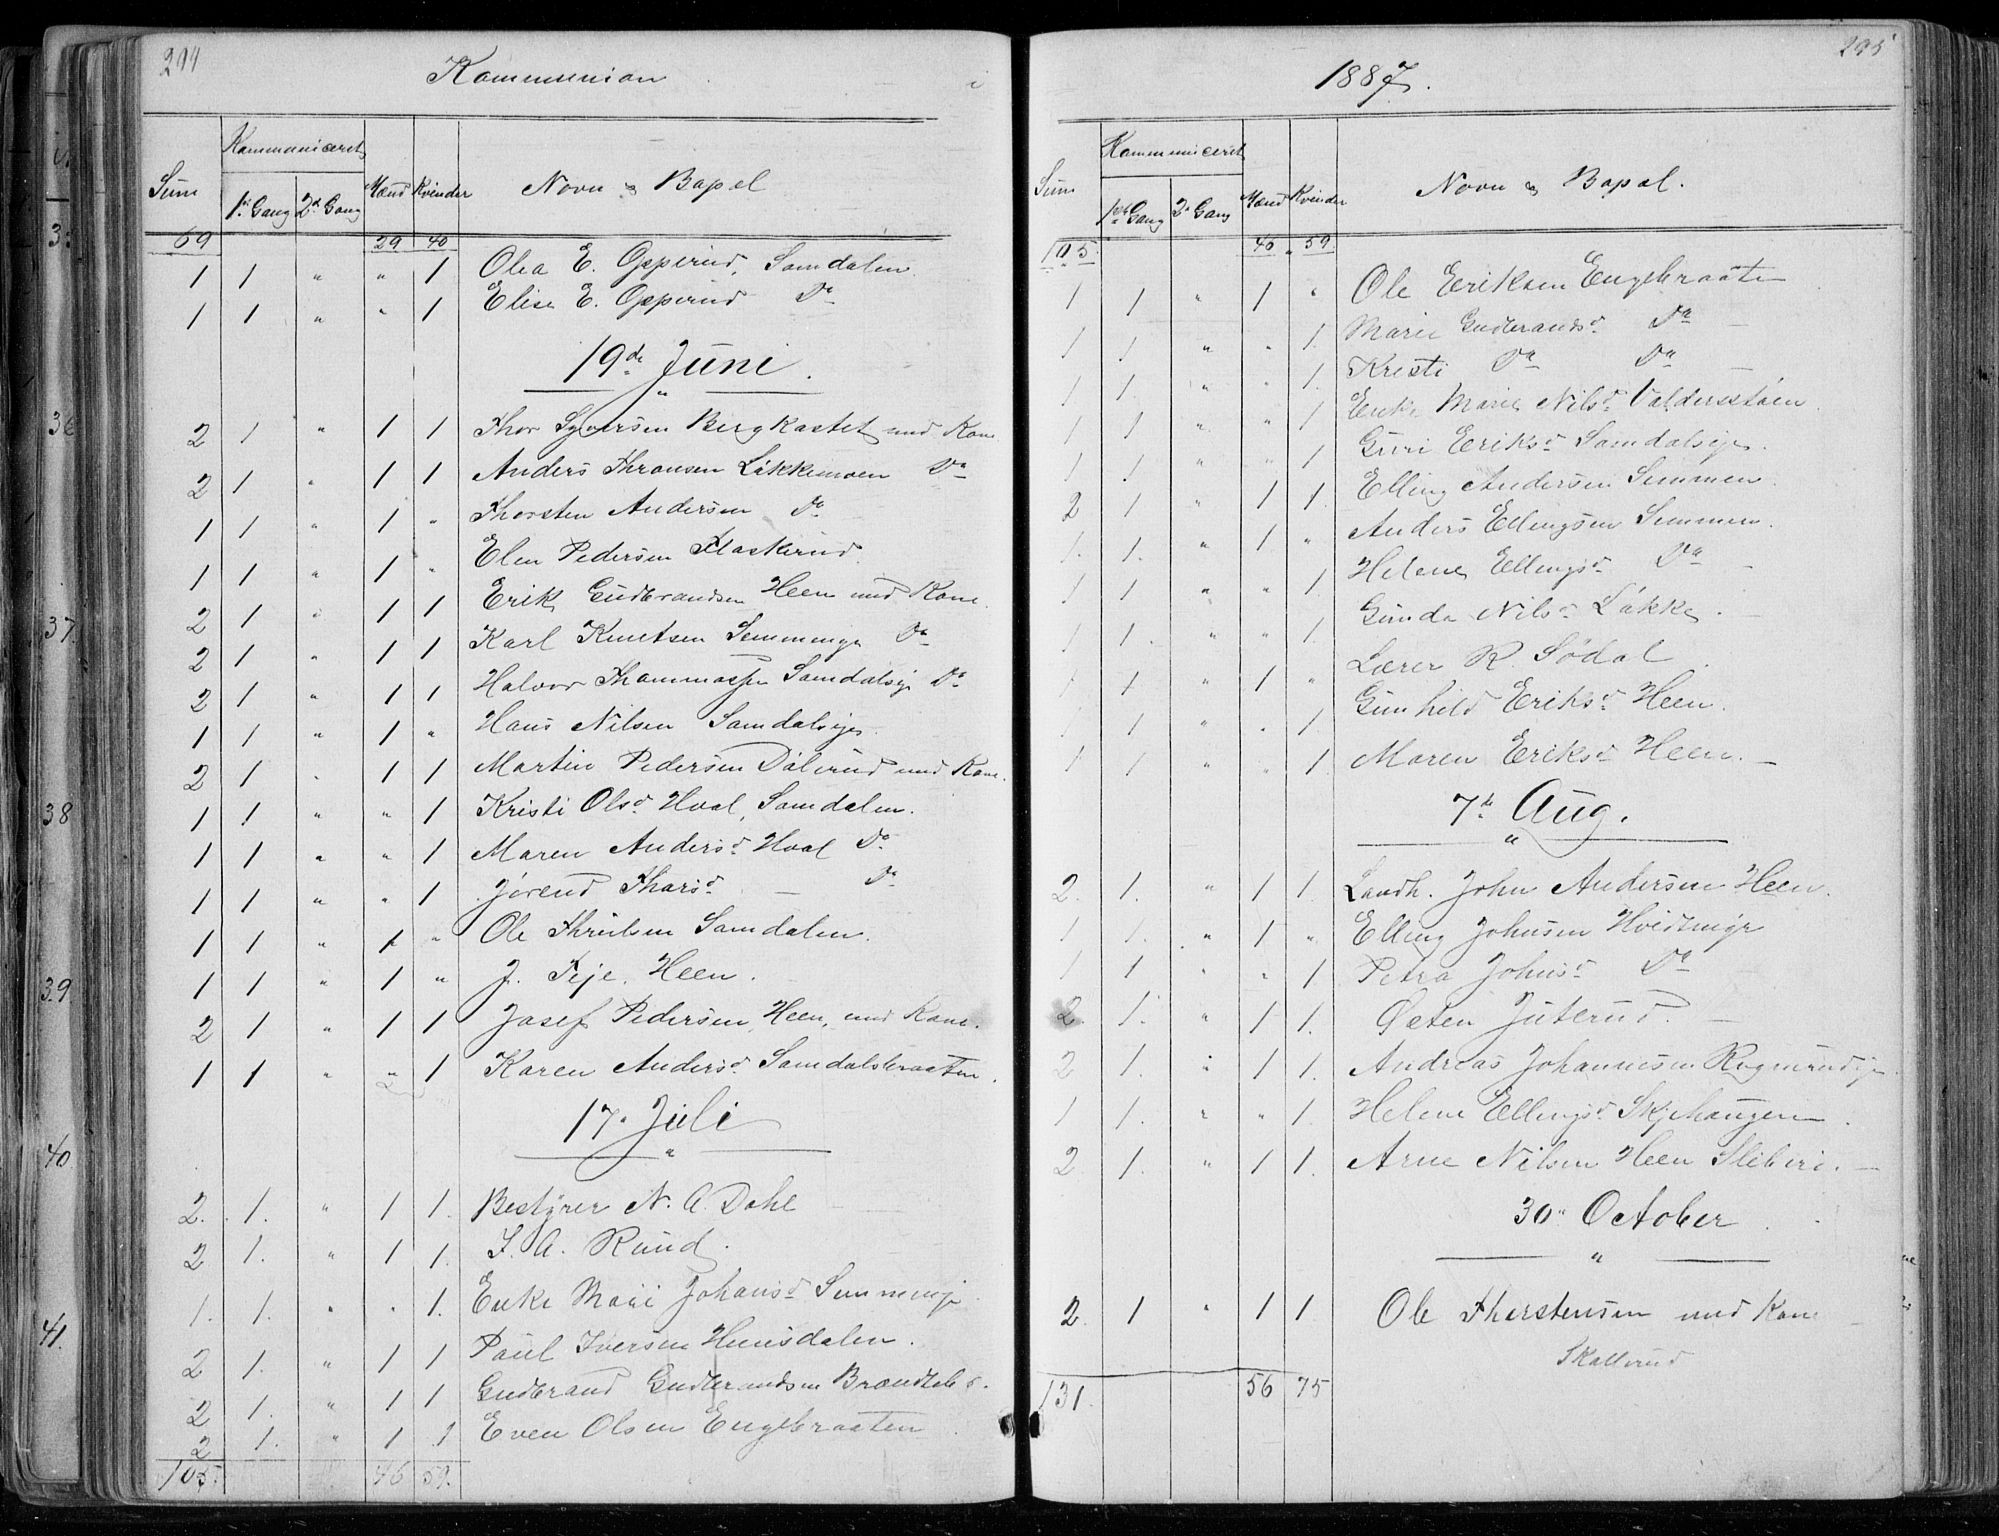 294
Kommunion i
Sum Kommuniceret Mænd Kvinder Navn & Bopæl
1ste Gang 2d Gang
69 29 40
1 1 " " 1 Olea E. Opperud, Somdalen.
1 1 " " 1 Elise E. Opperud Do
19de Juni.
2 1 " 1 1 Thor Syversen Bergkastet med Kone
2 1 " 1 1 Anders Thronsen Løkkemoen Do
1 1 " 1 " Thorsten Andersen Do
1 1 " 1 " Elen Pedersen Flaskerud.
2 1 " 1 1 Erik Gudbrandsen Heen med Kone.
2 1 " 1 1 Karl Knutsen Semminge Do
2 1 " 1 1 Halvor Thommassen Somdalseje Do
1 1 " 1 " Hans Nilsen Somdalseje.
2 1 " 1 1 Martin Pedersen Dølerud med Kone.
1 1 " " 1 Kristi Olsd. Hval, Somdalen.
1 1 " " 1 Maren Andersd. Hval Do
1 1 " " 1 Jørend Thorsd. — Do
1 1 " 1 " Ole Thrulsen Somdalen.
1 1 " 1 " J. Teje, Heen.
2 1 " 1 1 Josef Pedersen, Heen, med Kone.
1 1 " " 1 Karen Andersd. Somdalsbraaten.
17. Juli
2. 1. " 1 1. Bestyrer N. A. Dahl
2 1. " 1 1. S. A. Rund.
1. 1. " " 1. Enke Mari Johansd. Semminge
2 1. " 1 1 Paul Iversen Hensdalen.
2 1. " 1 1 Gudbrand Gudbrandsen
2 1. " 1 1 Even Olsen Engebraaten
105. 46 59.
295
1887.
Sum Kommuniceret Mænd Kvinder Navn & Bopæl.
1ste Gang 2d Gang
105. 46 " 59.
1 1 " 1 " Ole Eriksen Engebraaten
1 1 " " 1. Marie Gudbrandsd. Do —
1 1. " " 1. Kristi Do Do
1 1 " " 1 Enke Marie Nilsd. Valdersstøen
1 1. " " 1 Guri Eriksd. Somdalseje.
2 1 " 1 1. Elling Andersen Semmen.
1. 1. " 1 " Anders Ellingsen Semmen.
1 1 " " 1 Helene Ellingsd. Do —
1 1. " " 1. Gunda Nilsd. Løkke. —
1 1 " 1 " Lærer R. Sødal
1 1 " " 1. Gunhild Eriksd. Heen.
1 1 " " 1 Maren Eriksd. Heen. —
7de Aug.
2. 1. " 1 1. Landh. John Andersen Heen.
1 1. " 1 " Elling Johnsen Hvidsmyr
1 1 " " 1 Petra Johnsd. Do
2. 1. " 1 1. Østen Juterud. —
2 1. " 1 1. Andreas Johannesen
1 1. " " 1. Helene Ellingsd. Skjehaugen.
2. 1. " 1 1. Arne Nilsen Heen Sliberi. —
30. October.
2. 1 " 1 1 Ole Thorstensen med Kone
Skollerud
131. 56 75